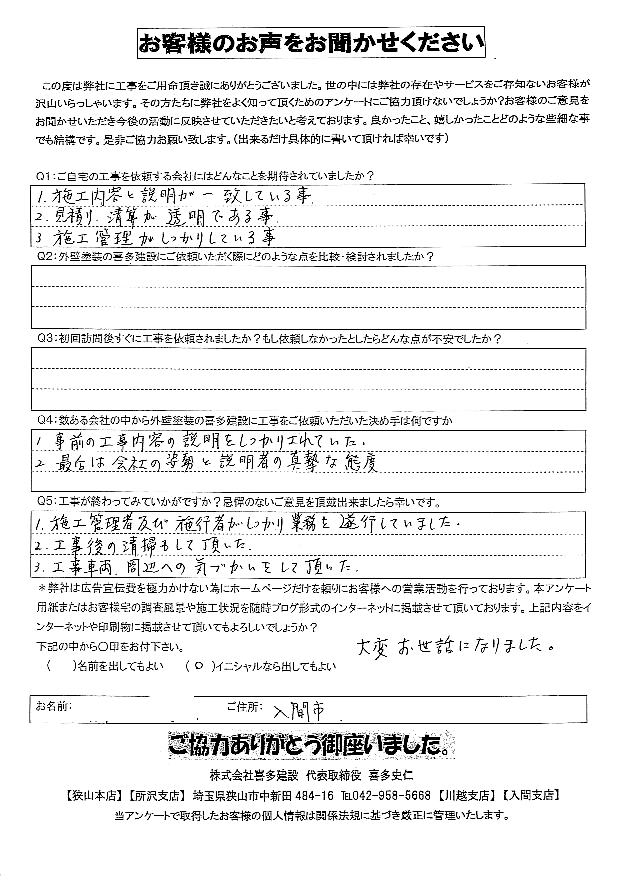 お客様のお声をお聞かせください
この度は弊社に工事をご用命頂き誠にありがとうございました。世の中には弊社の存在やサービスをご存知ないお客様が
沢山いらっしゃいます。その方たちに弊社をよく知って頂くためのアンケートにご協力頂けないでしょうか?お客様のご意見を
お聞かせいただき今後の活動に反映させていただきたいと考えております。良かったこと、嬉しかったことどのような些細な事
でも結構です。是非ご協力お願い致します。(出来るだけ具体的に書いて頂ければ幸いです)
Q1:ご自宅の工事を依頼する会社にはどんなことを期待されていましたか?
1.施工内容と説明が一致している事
2.見積り.清算が透明である事
3 施工管理がしっかりしている事
Q2:外壁塗装の喜多建設にご依頼いただく際にどのような点を比較・検討されましたか?
Q3:初回訪問後すぐに工事を依頼されましたか?もし依頼しなかったとしたらどんな点が不安でしたか?
Q4:数ある会社の中から外壁塗装の喜多建設に工事をご依頼いただいた決め手は何ですか
1 事前の工事内容の説明をしっかりされていた.
2 最后は会社の姿勢と説明者の真摯な態度
Q5:工事が終わってみていかがですか?忌憚のないご意見を頂戴出来ましたら幸いです。
1.施工管理者及び施行者がしっかり業務を遂行していました.
2.工事後の清掃もして頂いた.
3.工事車両.周辺への気づかいをして頂いた.
*弊社は広告宣伝費を極力かけない為にホームページだけを頼りにお客様への営業活動を行っております。本アンケート
用紙またはお客様宅の調査風景や施工状況を随時ブログ形式のインターネットに掲載させて頂いております。上記内容をイ
ンターネットや印刷物に掲載させて頂いてもよろしいでしょうか?
下記の中から〇印をお付下さい。
大変お世話になりました。
( )名前を出してもよい (○)イニシャルなら出してもよい
お名前: ご住所: 入間市
ご協力ありがとう御座いました。
株式会社喜多建設 代表取締役 喜多史仁
【狭山本店】【所沢支店】埼玉県狭山市中新田484-16 ℡042-958-5668【川越支店】【入間支店】
当アンケートで取得したお客様の個人情報は関係法規に基づき厳正に管理いたします。